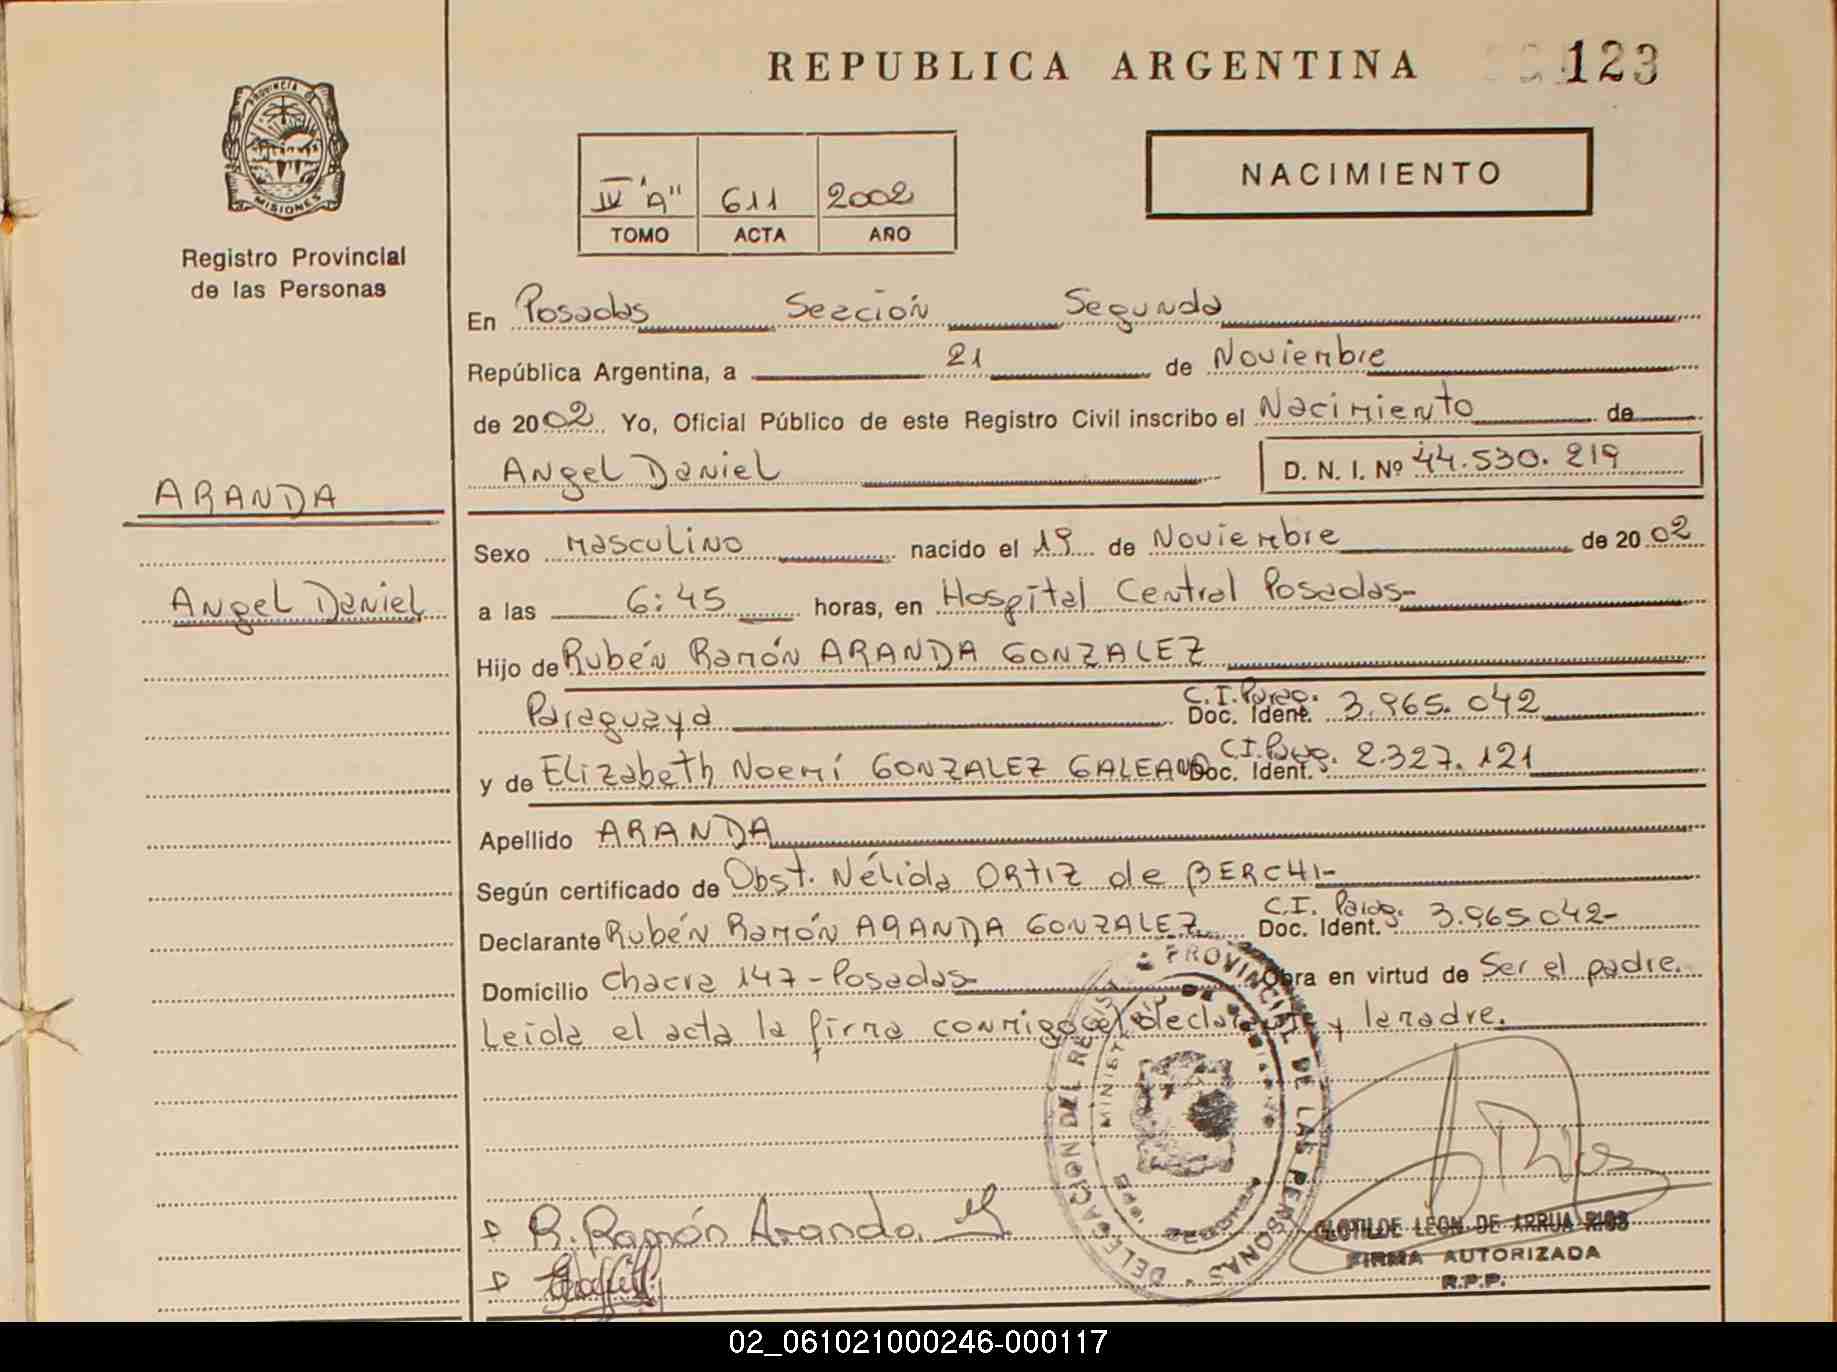 REPUBLICA ARGENTINA
123
PROVINCIA DE
MISIONES
Registro Provincial
de las Personas
NACIMIENTO
IV "A" 611 2002
TOMO ACTA AÑO
En Posadas Sección Segunda
República Argentina, a 21 de Noviembre
de 2002 Yo, Oficial Público de este Registro Civil inscribo el Nacimiento de
Angel Daniel D. N. I. Nº 44.530.219
ARANDA
Angel Daniel
Sexo Masculino nacido el 19 de Noviembre de 2002
a las 6:45 horas, en Hospital Central Posadas-
Hijo de Rubén Ramón ARANDA GONZALEZ
Paraguaya C.I. Parag. Doc. Ident. 3.965.042
y de Elizabeth Noemí GONZALEZ GALEANO C.I. Parag. Doc. Ident. 2.327.121
Apellido ARANDA
Según certificado de Obst. Nélida ORTIZ de BERCHI-
Declarante Rubén Ramón ARANDA GONZALEZ C.I. Parag. Doc. Ident. 3.965.042-
Domicilio Chacra 147-Posadas- Obra en virtud de Ser el padre.
Leida el acta la firma conmigo el declarante y la madre.
DELEGACION DEL REGISTRO PROVINCIAL DE LAS PERSONAS
MINISTERIO DE GOBIERNO
R. Ramón Aranda
CLOTILDE LEON DE ARRUA RIOS
FIRMA AUTORIZADA
R.P.P.
02_061021000246-000117